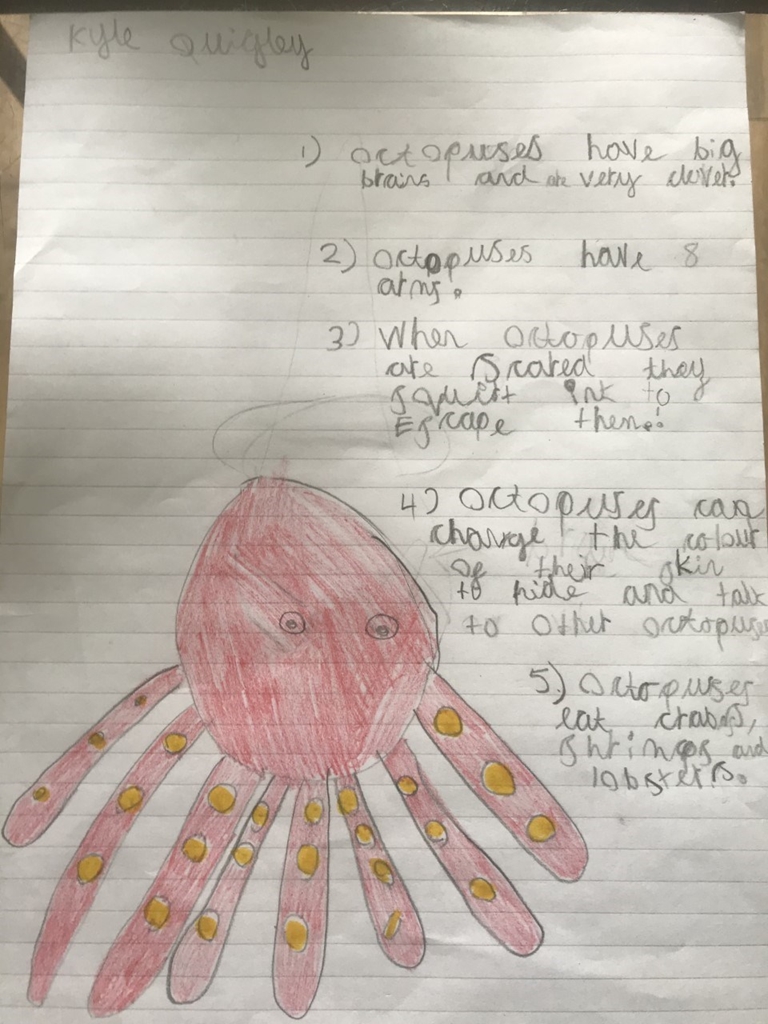 Kyle Quigley
1) Octopuses have big
brains and are very clever.
2) Octopuses have 8
arms.
3) When octopuses
are scared they
squirt ink to
Escape them.
4) Octopuses can
change the colour
of their skin
to hide and talk
to other octopuses
5) Octopuses
eat crabs,
shrimps and
lobsters.